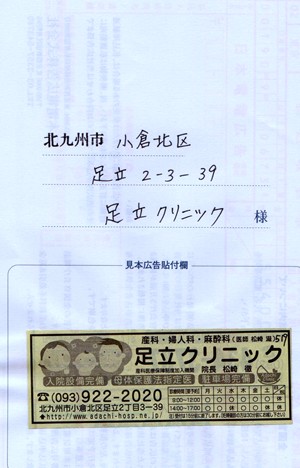 北九州市 小倉北区
足立 2-3-39
足立クリニック 様
見本広告貼付欄
産科・婦人科・麻酔科(医師 松崎 滋)519
足立クリニック
産科医療保障制度加入機関 院長 松崎 徹
入院設備完備 母体保護法指定医 駐車場完備
☎(093)922-2020
北九州市小倉北区足立2丁目3-39
◆http://www.adachi-hosp.ne.jp/
月 火 水 木 金 土
9:00〜12:00
14:00〜17:00